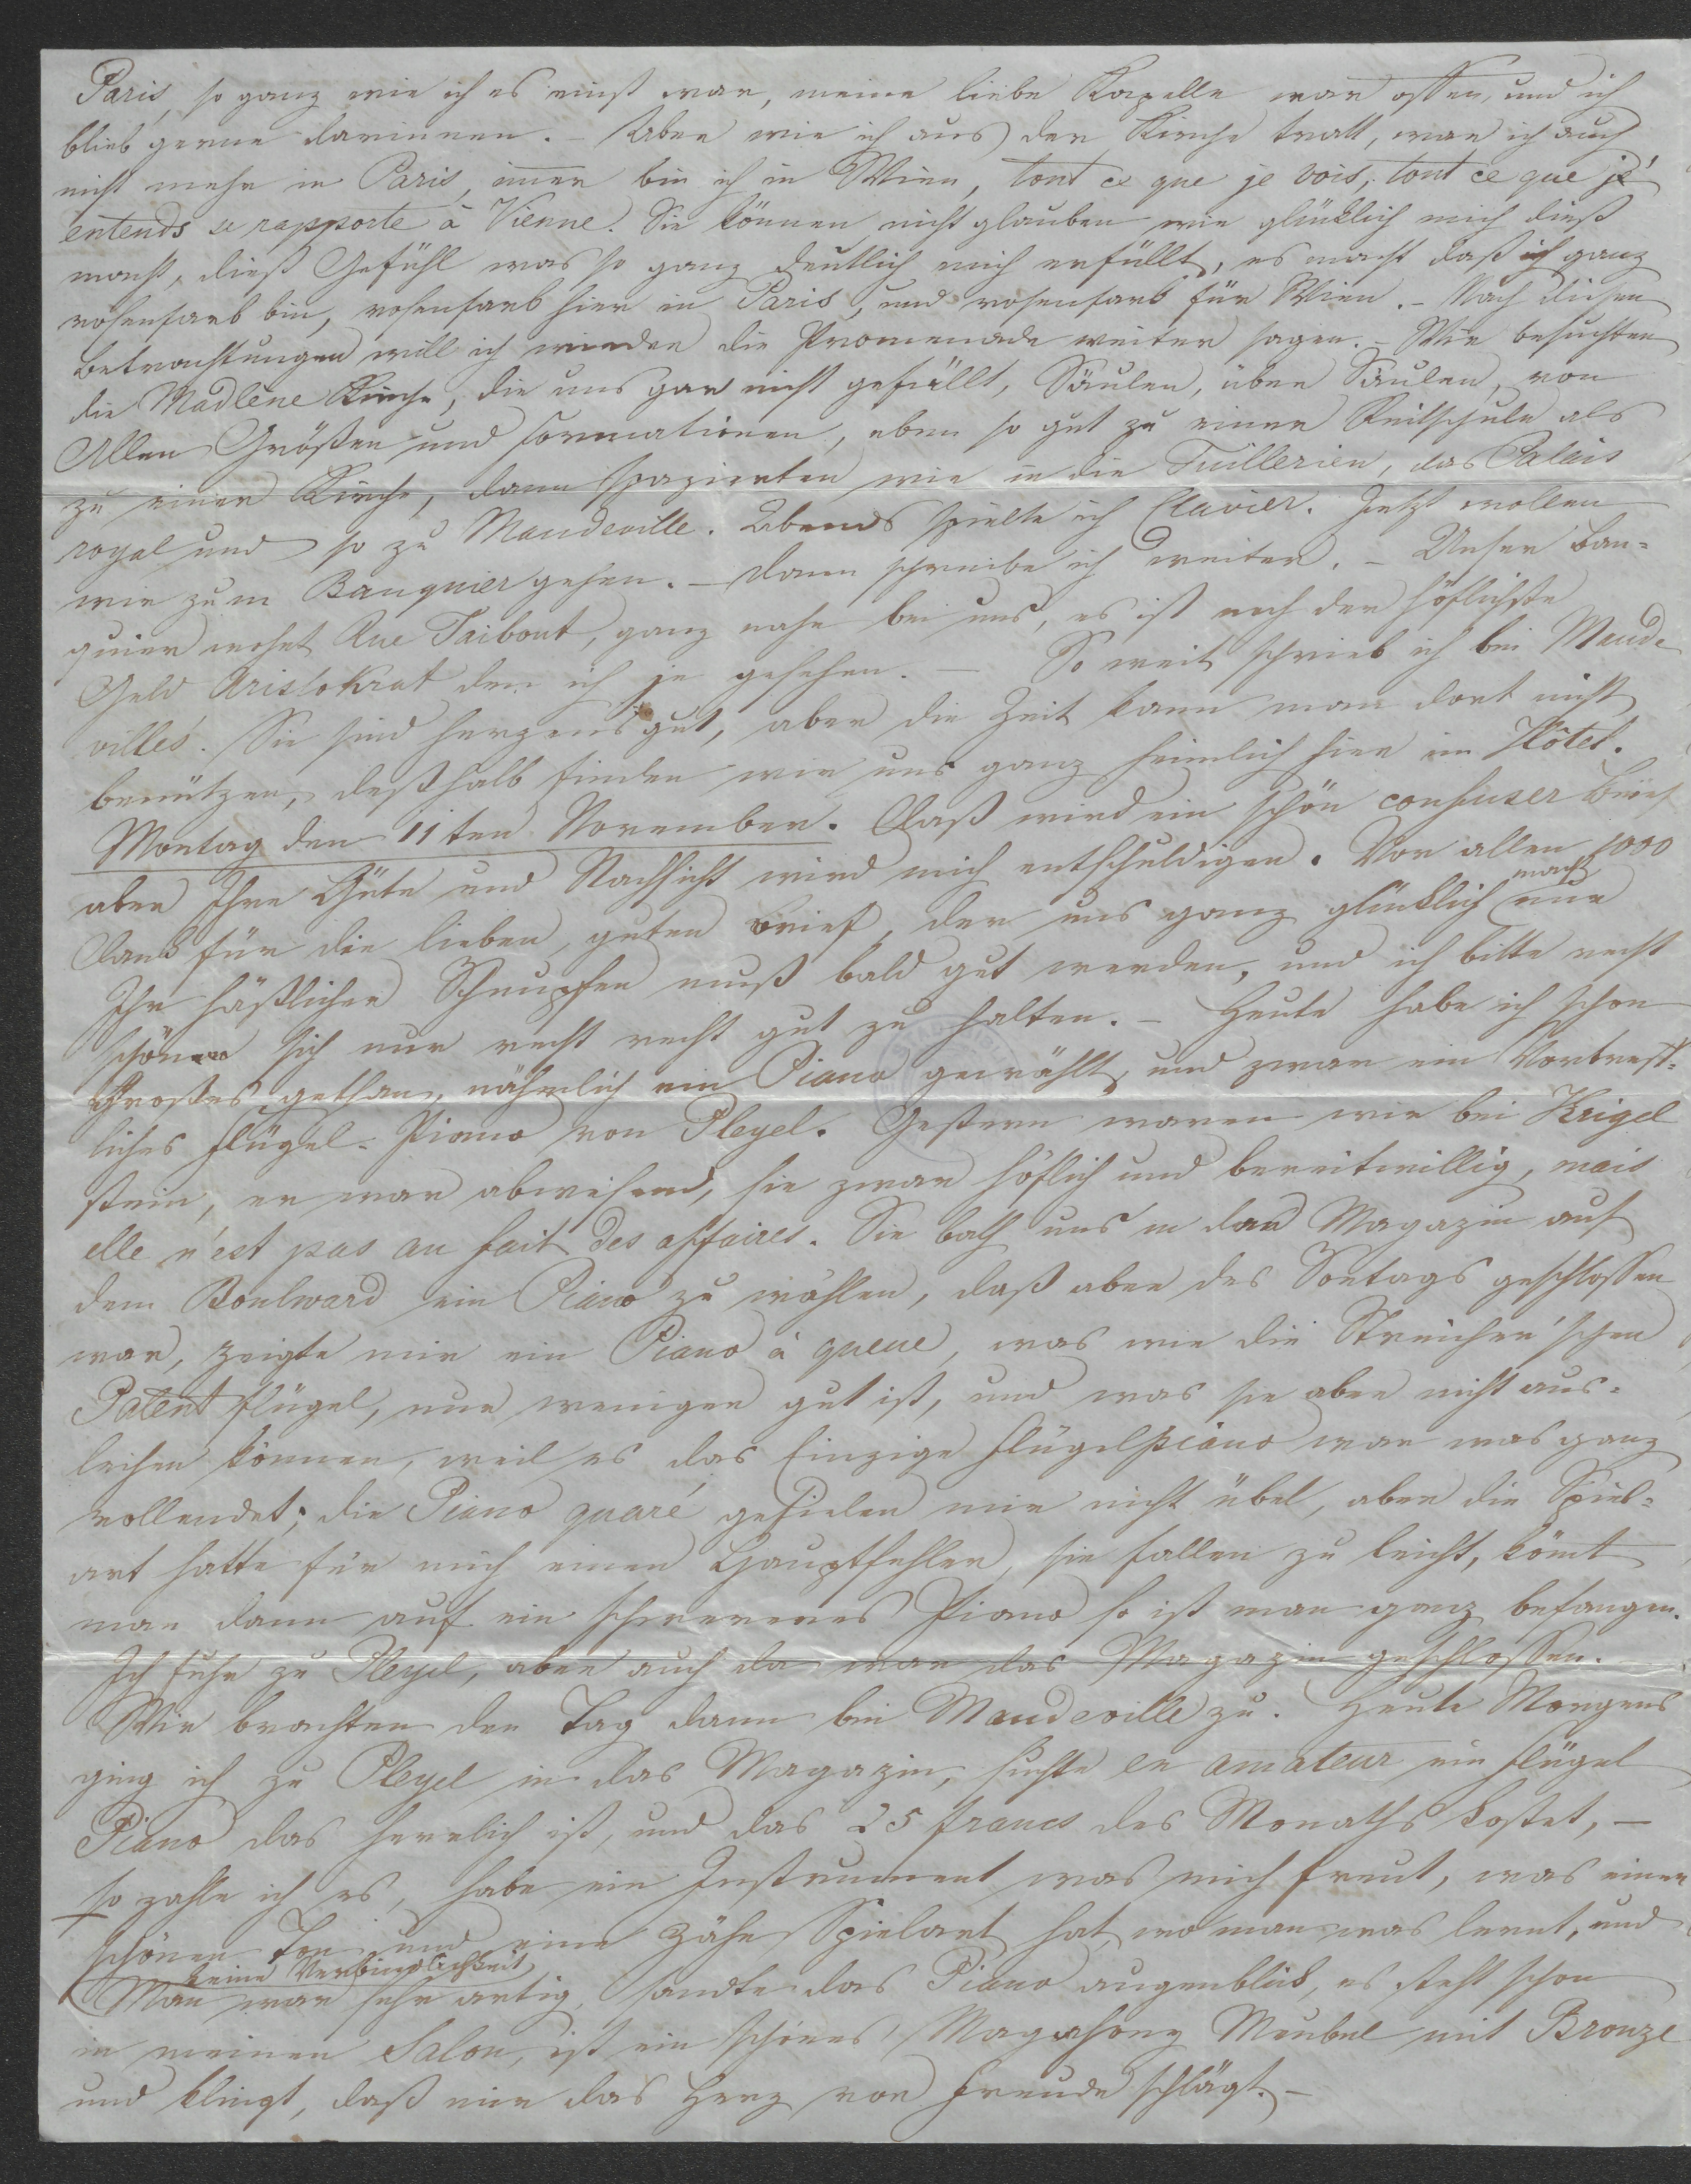 Paris, so ganz wie ich es einst war, meine liebe Kapelle war offen, und ich
blieb gerne darinnen. – Aber wie ich aus der Kirche tratt, war ich auch
nicht mehr in Paris, im̅er bin ich in Wien, tout ce que je vois, tout ce que j'
entends se rapporte à Vienne. Sie können nicht glauben wie glücklich mich dieß
macht, dieß Gefühl was so ganz deutlich mich erfüllt, es macht daß ich ganz
rosenfarb bin, rosenfarb hier in Paris, und rosenfarb für Wien. – Nach diesen
Betrachtungen will ich wieder die Promenade weiter sagen. – Wir besuchten
die Madlene Kirche, die uns gar nicht gefällt, Säulen, über Säulen, von
Allen Größen und Formationen, eben so gut zu einer Reitschule als
zu einer Kirche, dann spazierten wir in die Tuillerien, das Palais
royal und so zu Mandeville. Abends spielte ich Clavier. Jetzt wollen
wir zum Banquier gehen. – dann schreibe ich weiter. – Unser Ban=
quier wohnt Rue Taibout, ganz nahe bei uns, es ist noch der höflichste
Geld Aristokrat den ich je gesehen. – So weit schrieb ich bei Mande
villes. Sie sind herzensgut, aber die Zeit kann man dort nicht
benützen, deßhalb finden wir uns ganz heimlich hier im Hôtel.
Montag den 11ten November. Daß wird ein schön confuser Brief
aber Ihre Güte und Nachsicht wird mich entschuldigen. Vor allen 1000
Dank für die lieben, guten Brief, der uns ganz glücklich macht nur
Ihr häßlicher Schnupfen muß bald gut werden, und ich bitte recht
schön sich nur recht recht gut zu halten. – Heute habe ich schon
Großes gethan, nähmlich ein Piano gewählt, und zwar ein Vortreff=
liches Flügel-Piano von Pleyel. Gestern waren wir bei Krigel
stein, er war abwesend, sie zwar höflich und bereitwillig, mais
elle n'est pas au fait des affaires. Sie bath uns in das Magazin auf
dem Boulward ein Piano zu wählen, daß aber des Sontags geschlossen
war, zeigte mir ein Piano à queue, was wie die Streicher'schen
Patent Flügel, nur weniger gut ist, und was sie aber nicht aus=
leihen können, weil es das Einzige Flügelpiano war was ganz
vollendet; die Piano quaré gefielen mir nicht übel, aber die Spiel=
art hatte für mich einen Hauptfehler, sie fallen zu leicht, köm̅t
man dann auf ein schwereres Piano so ist man ganz befangen.
Ich fuhr zu Pleyel, aber auch da war das Magazin geschlossen.
Wir brachten den Tag dann bei Mandeville zu. Heute Morgens
ging ich zu Pleyel in das Magazin, suchte en amateur ein Flügel
Piano das herrlich ist, und das 25 francs des Monaths kostet, –
so zahle ich es, habe ein Instrument was mich freut, was einen
schönen Ton und eine zähe Spielart hat, wo man was lernt, und
keine Verbindlichkeit
Man war sehr artig, sandte das Piano augenblick, es steht schon
in meinen Salon, ist ein schönes Magahony Meubel mit Bronze
und klingt, daß mir das Herz vor Freude schlägt. –